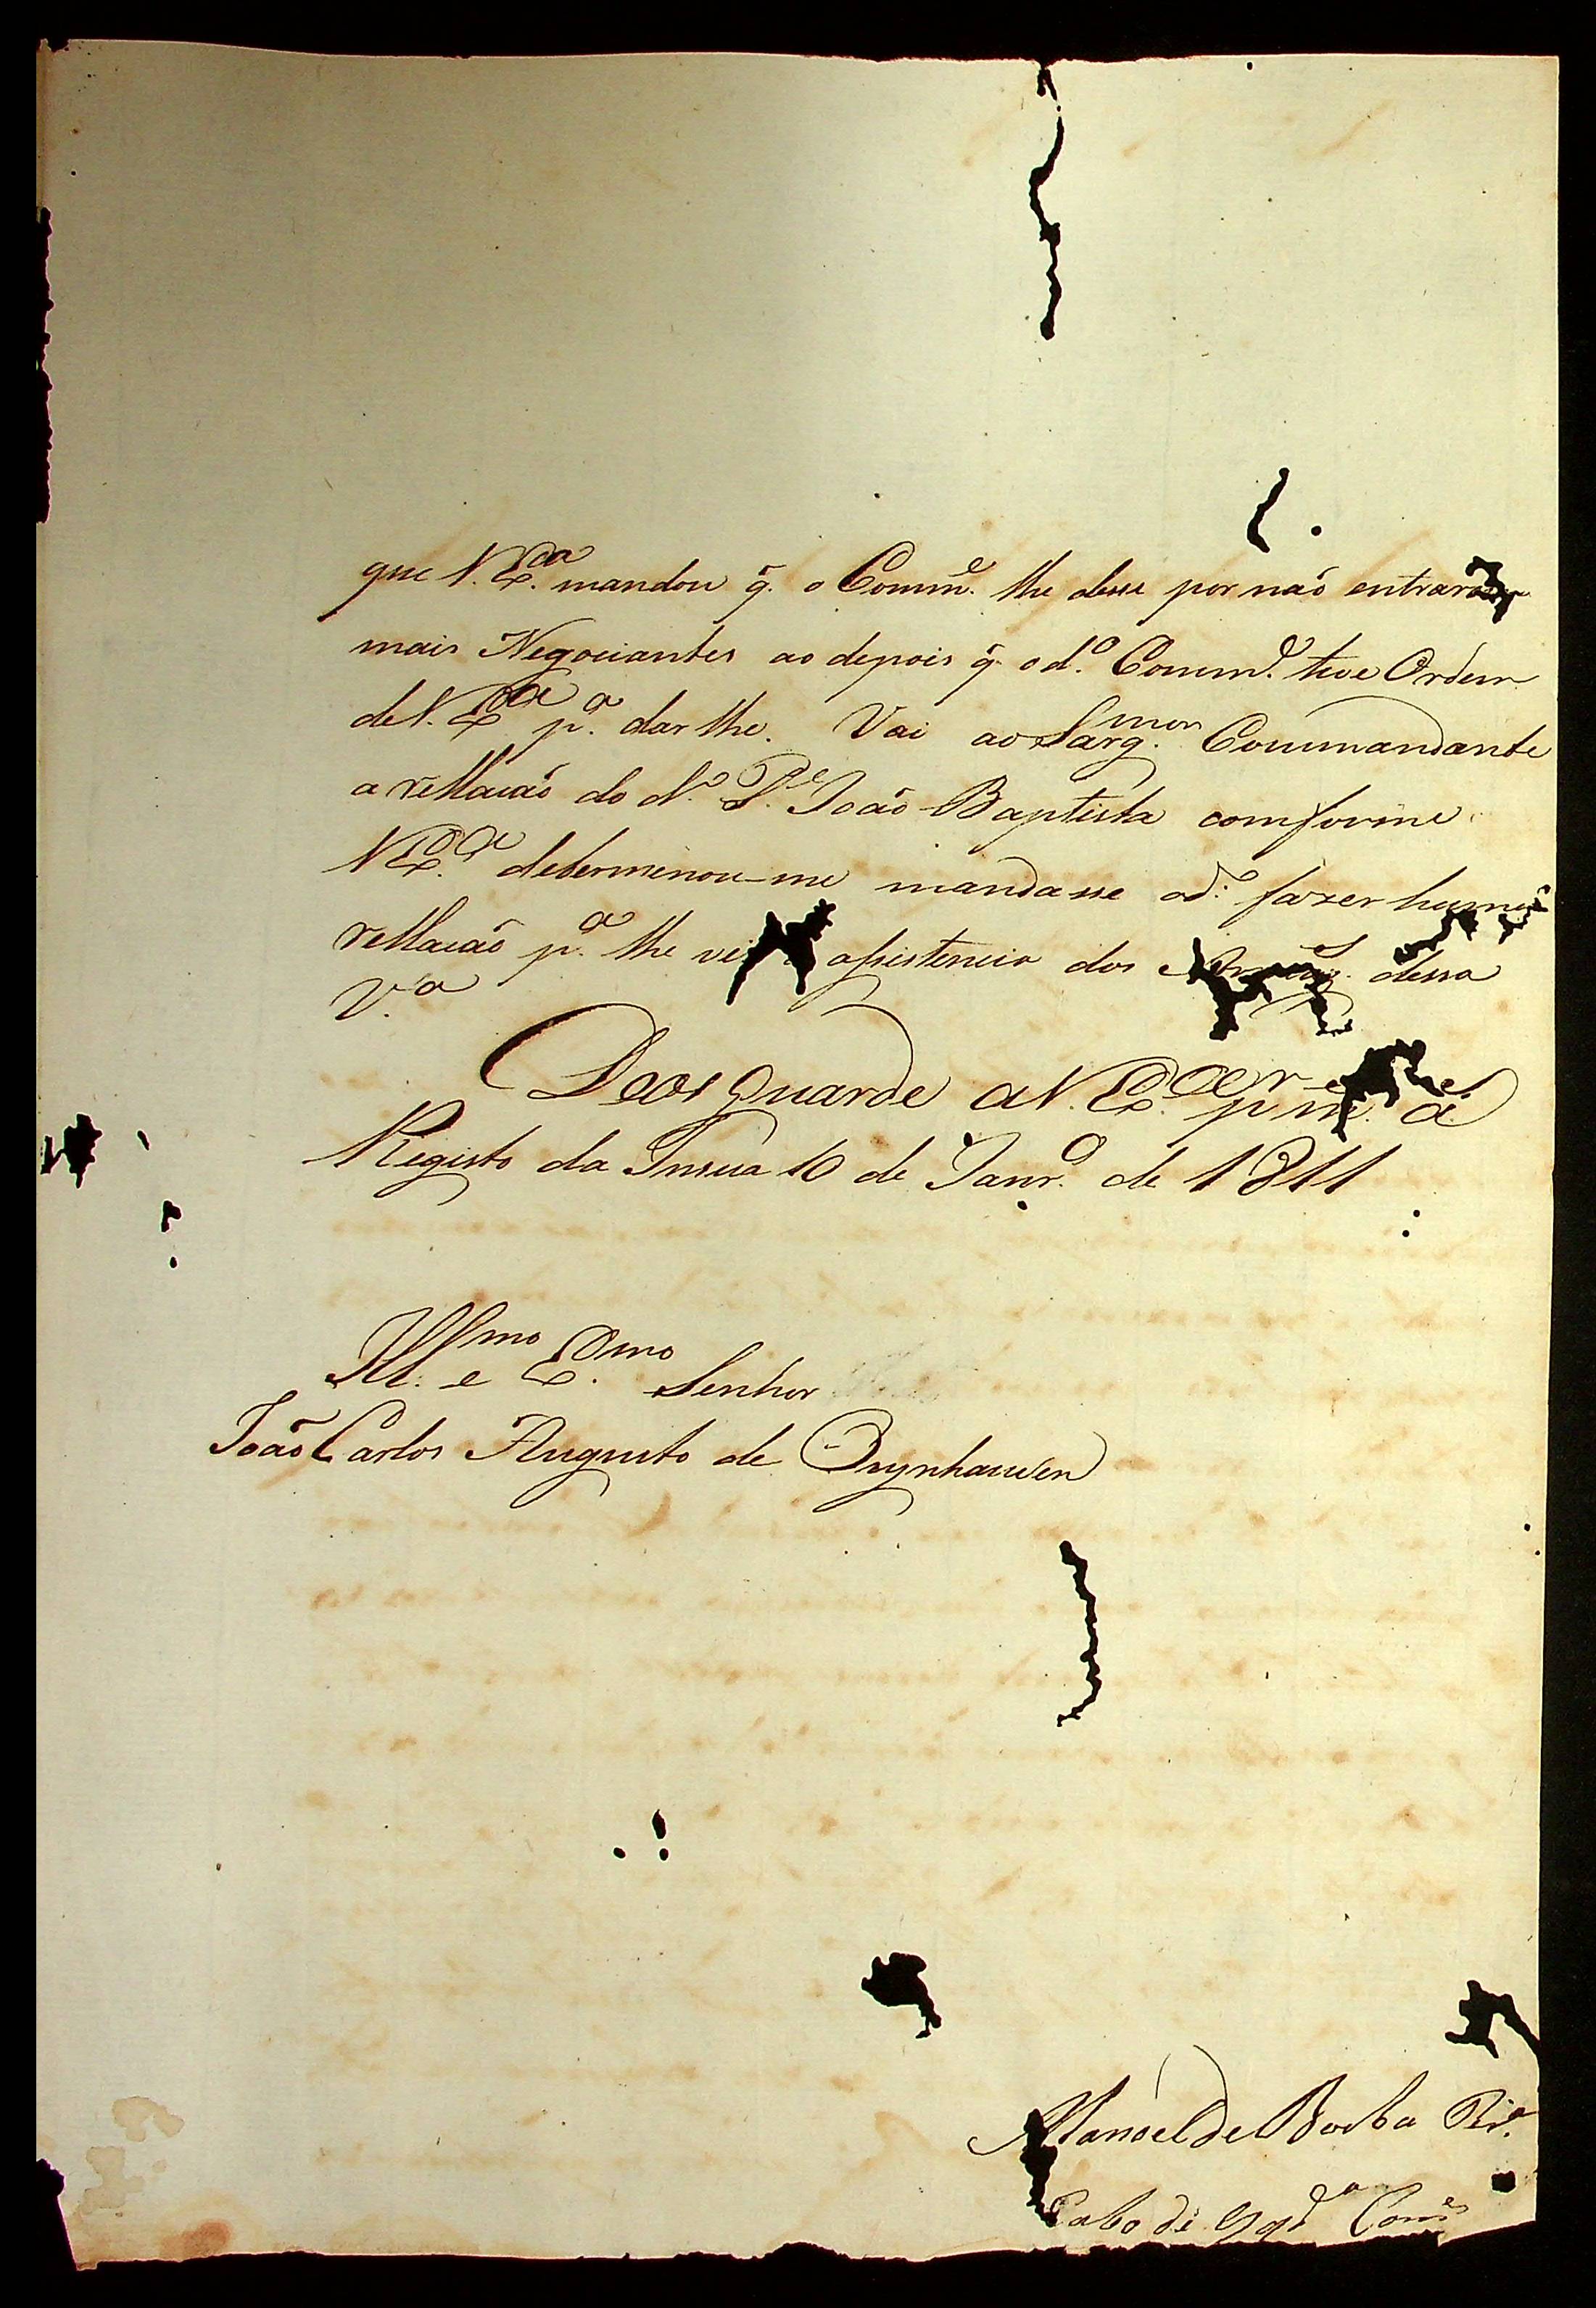 que V. Ex.ca mandou q̃. o Comm.e lhe desse por naõ entrarem
mais Negociantes ao depois q̃. o d.o Comm.e teve Ordem
de V. Ex.ca p.a dar lhe. Vai ao Sarg.mor Commandante
a rellacaõ do d.o P.e Joaõ Baptista comforme
V Ex.ca determenou-me mandasse o d.o fazer huma
rellacaõ p.a lhe asistencia dos dessa
V.a
Deos Guarde a V. Ex.ca p.r m. a.
Registo da Insua 10 de Janr.o de 1811
Ill.mo e Ex.mo Senhor
Joaõ Carlos Augusto de Oeynhausen
Manoel de Borba Per.a
Cabo de Esqd.a Com.e